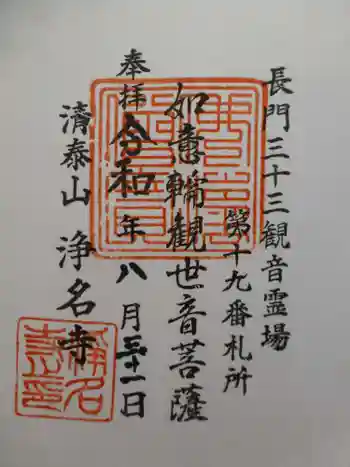 長門三十三観音霊場
第十九番札所
如意輪観世音菩薩
奉拝
令和 年八月三十一日
清泰山 浄名寺